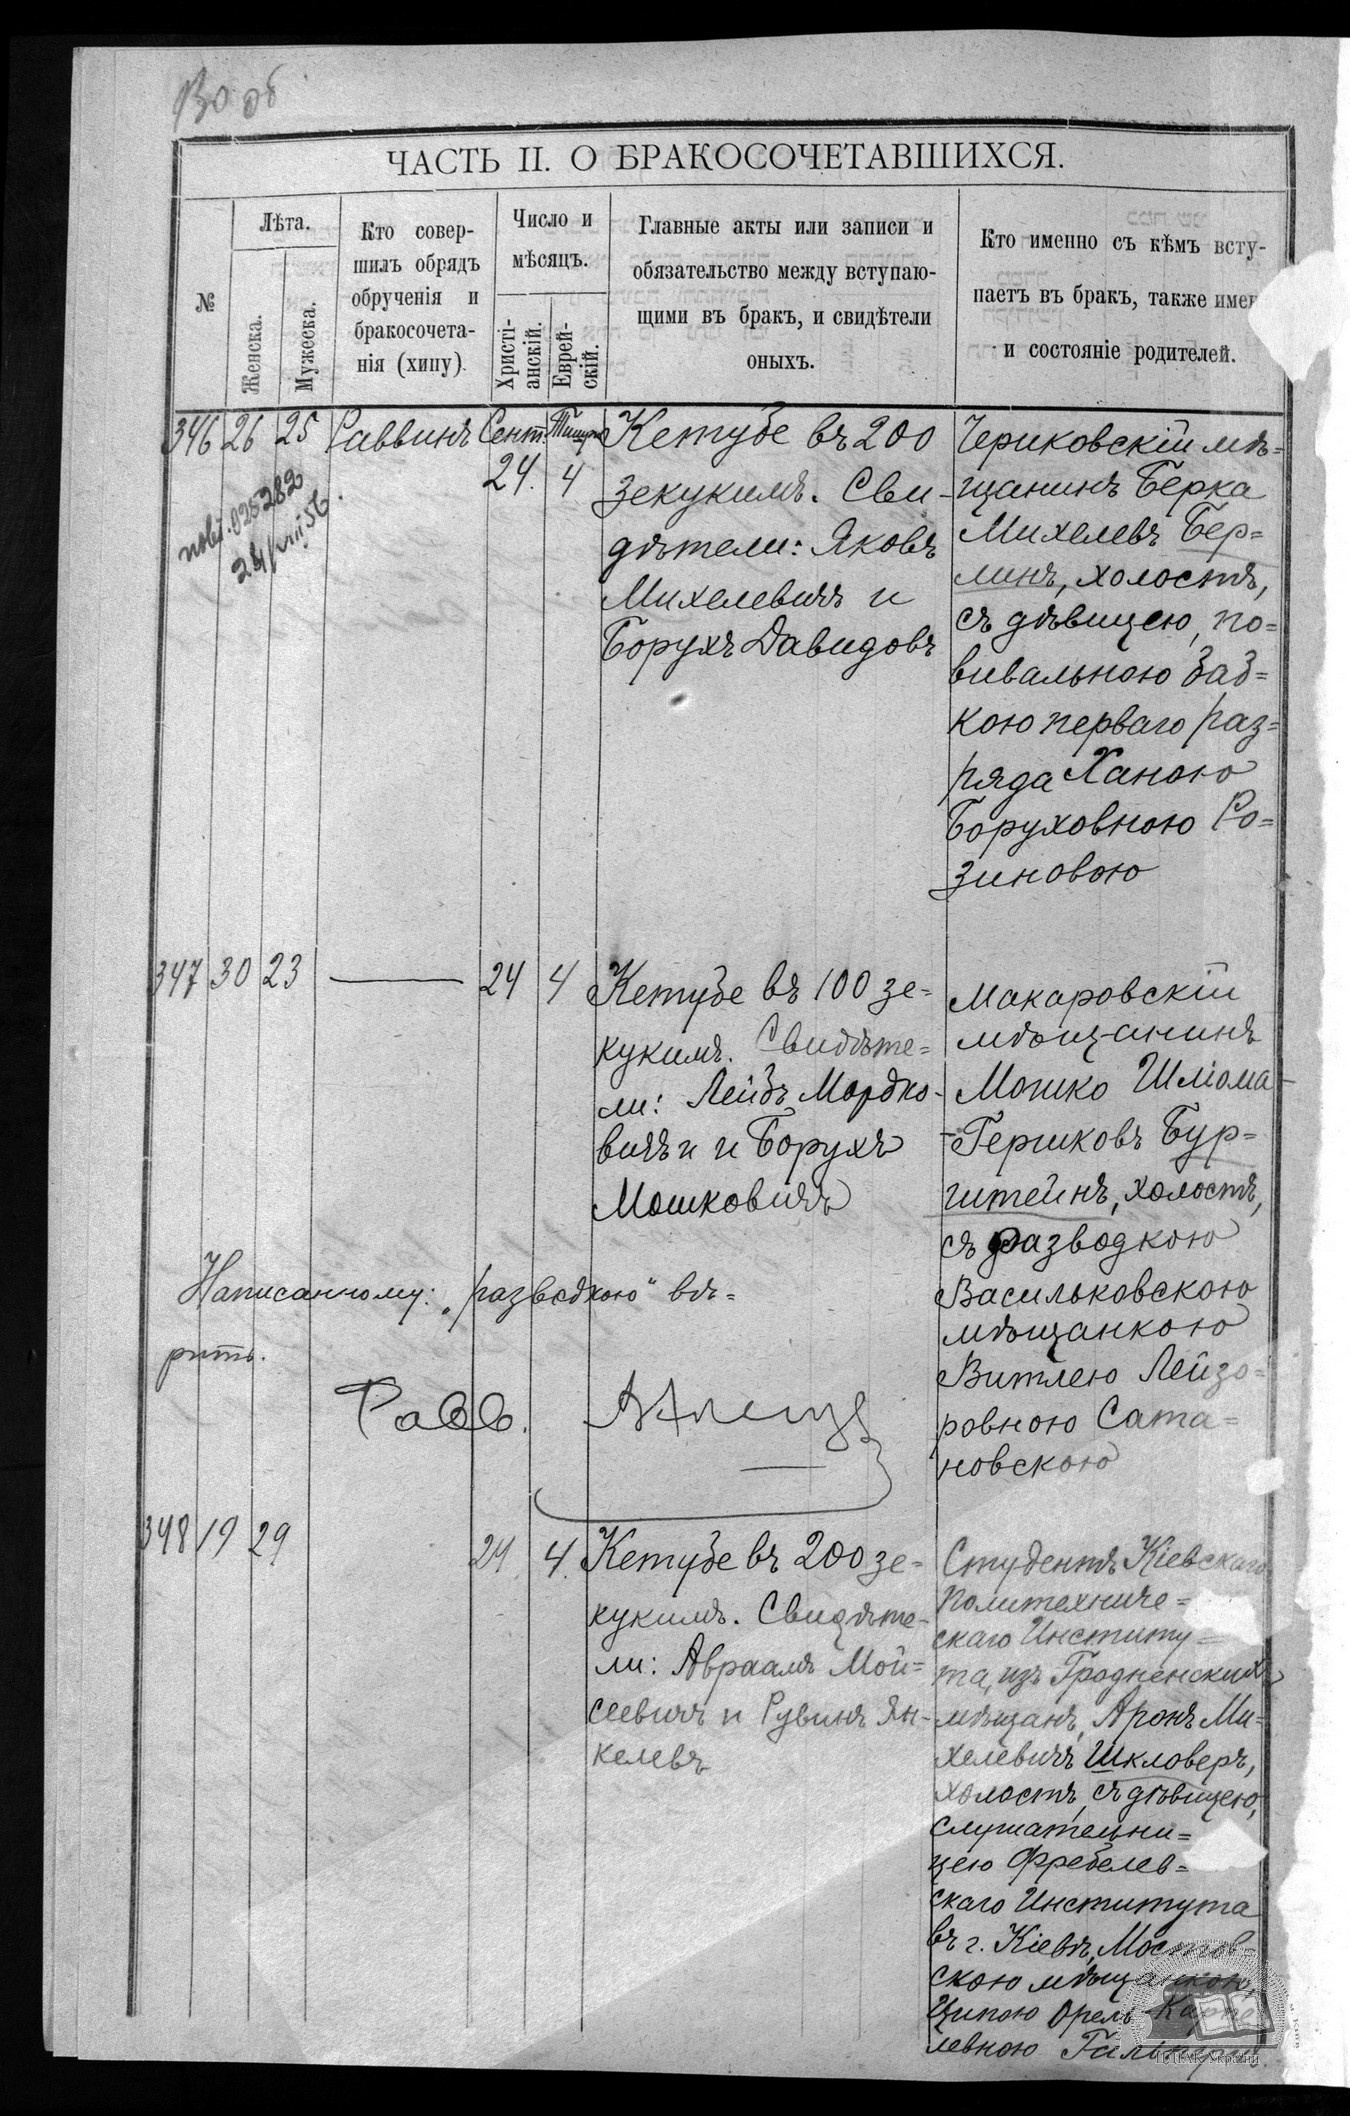 130 об
ЧАСТЬ II. О БРАКОСОЧЕТАВШИХСЯ.
№
Лѣта.
Женска.
Мужеска.
Кто совер-
шилъ обрядъ
обрученія и
бракосочета-
нія (хипу).
Число и
мѣсяцъ.
Христі-
анскій.
Еврей-
скій.
Главные акты или записи и
обязательство между вступаю-
щими въ бракъ, и свидѣтели
оныхъ.
Кто именно съ кѣмъ всту-
паетъ въ бракъ, также имен
и состояніе родителей.
346 26 25 Раввинъ Сент. 24. Тишри 4
Кетубе въ 200
зекукимъ. Сви-
дѣтели: Яковъ
Михелевичъ и
Борухъ Давидовъ
Чериковскій мѣ=
щанинъ Берка
Михелевъ Бер=
линъ, холостъ,
съ дѣвицею, по=
вивальною баб=
кою перваго раз=
ряда Ханою
Боруховною Ро=
зиновою
025282
347 30 23 — 24 4
Кетубе въ 100 зе=
кукимъ. Свидѣте=
ли: Лейбъ Мордко-
вичъ и и Борухъ
Мошковичъ
Макаровскій
мѣщанинъ
Мошко Шліома-
-Гершковъ Бур=
штейнъ, холостъ,
съ разводкою
Васильковскою
мѣщанкою
Витлею Лейзо=
ровною Сата=
новскою
Написанному: „разводкою“ вѣ=
рить.
Равв.
348 19 29 24 4.
Кетубе въ 200 зе=
кукимъ. Свидѣте-
ли: Авраамъ Мой=
сеевичъ и Рувинъ Ян-
келевъ
Студентъ Кіевскаго
Политехниче=
скаго Институ=
та, изъ Гродненскихъ
мѣщанъ, Аронъ Ми=
хелевичъ Шкловеръ,
холостъ, съ дѣвицею,
слушательни=
цею Фребелев=
скаго Института
въ г. Кіевѣ, Мостов-
скою мѣщанкою
Ципою Орель
левною
ЦДІАК України